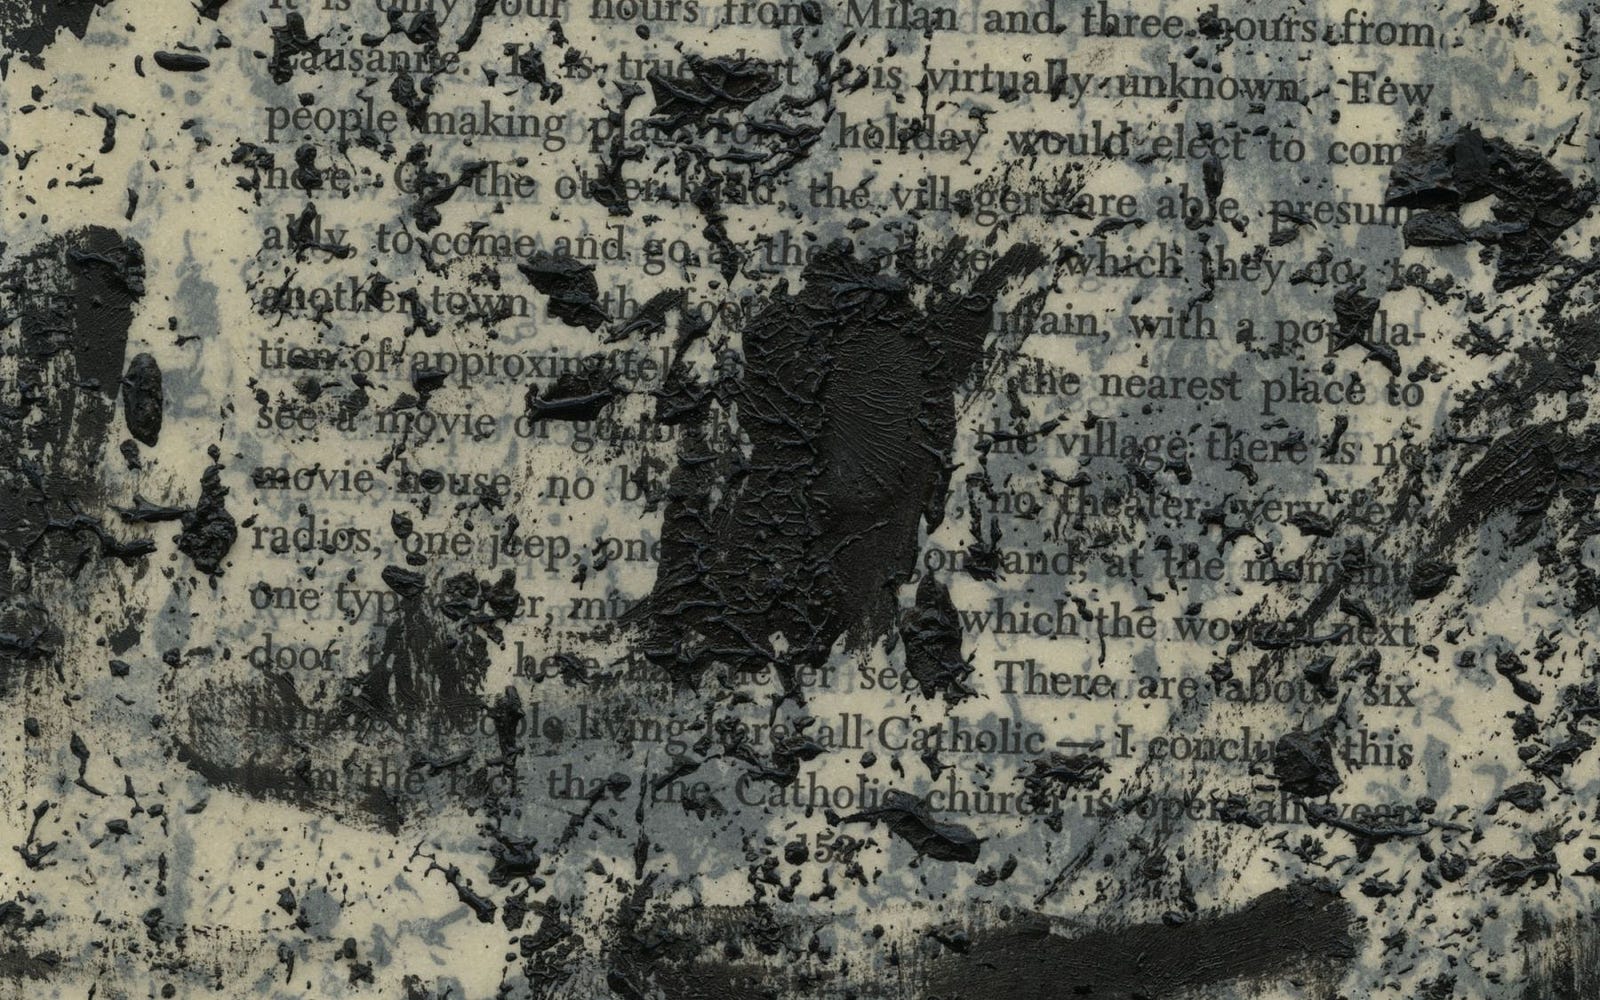 It is only four hours from Milan and three hours from
Lausanne. It is true that it is virtually unknown. Few
people making plans for a holiday would elect to come
here. On the other hand, the villagers are able, presum-
ably, to come and go as they please — which they do, to
another town at the foot of the mountain, with a popula-
tion of approximately the nearest place to
see a movie or go to the the village there is no
movie house, no no theater, very few
radios, one jeep, one and, at the moment,
one typewriter, mine, which the woman next
door to me here had never seen. There are about six
hundred people living here, all Catholic — I conclude this
from the fact that the Catholic church is open all year